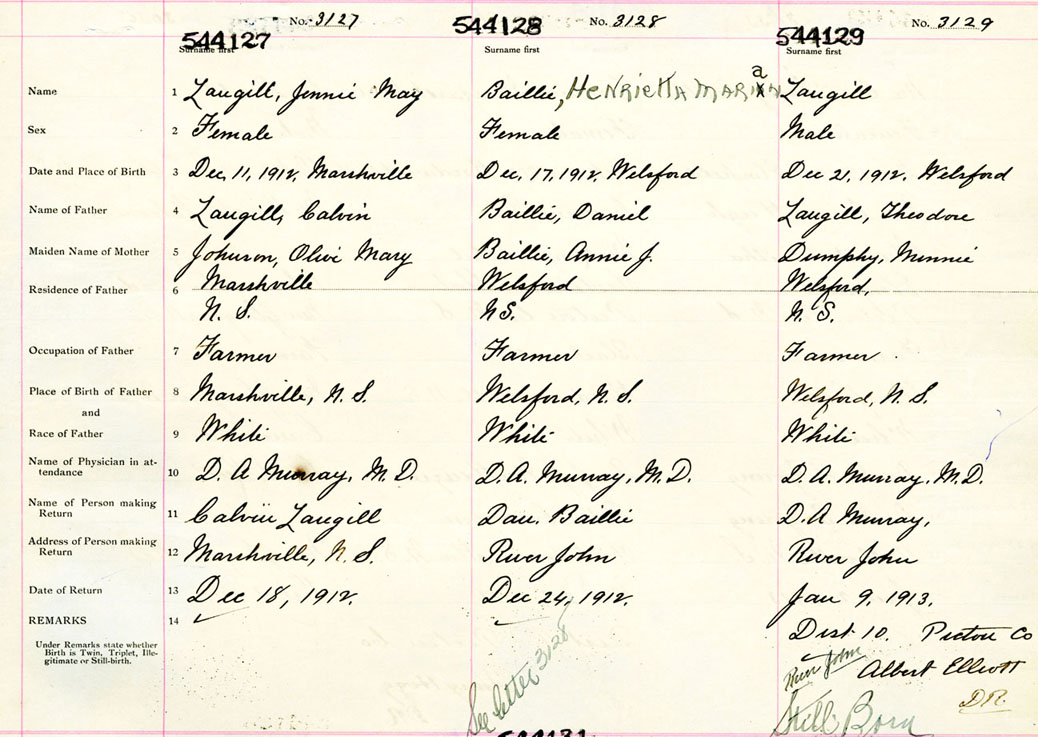 No. 3127 No. 3128 No. 3129
544127 544128 544129
Surname first Surname first Surname first
Name 1 Langill, Jennie May Baillie, Henrietta Maria Langill
Sex 2 Female Female Male
Date and Place of Birth 3 Dec, 11, 1912. Marshville Dec. 17, 1912. Welsford Dec 21, 1912. Welsford
Name of Father 4 Langill, Calvin Baillie, Daniel Langill, Theodore
Maiden Name of Mother 5 Johnson, Olive Mary Baillie, Annie J. Dumphy, Minnie
Residence of Father 6 Marshville Welsford Welsford,
N. S. NS. N. S.
Occupation of Father 7 Farmer Farmer Farmer
Place of Birth of Father 8 Marshville, N. S. Welsford, N. S. Welsford, N. S.
and
Race of Father 9 White White White
Name of Physician in at-
tendance 10 D. A Murray, M. D. D. A. Murray, M. D. D. A. Murray, M. D.
Name of Person making
Return 11 Calvin Langill Dan. Baillie D. A Murray,
Address of Person making
Return 12 Marshville, N. S. River John River John
Date of Return 13 Dec 18, 1912. Dec 24, 1912. Jan 9, 1913.
REMARKS 14
Under Remarks state whether
Birth is Twin, Triplet, Ille-
gitimate or Still-birth.
See letter 3128
Dist 10. Pictou Co
River John Albert Elliott
D.R.
Still Born
544131